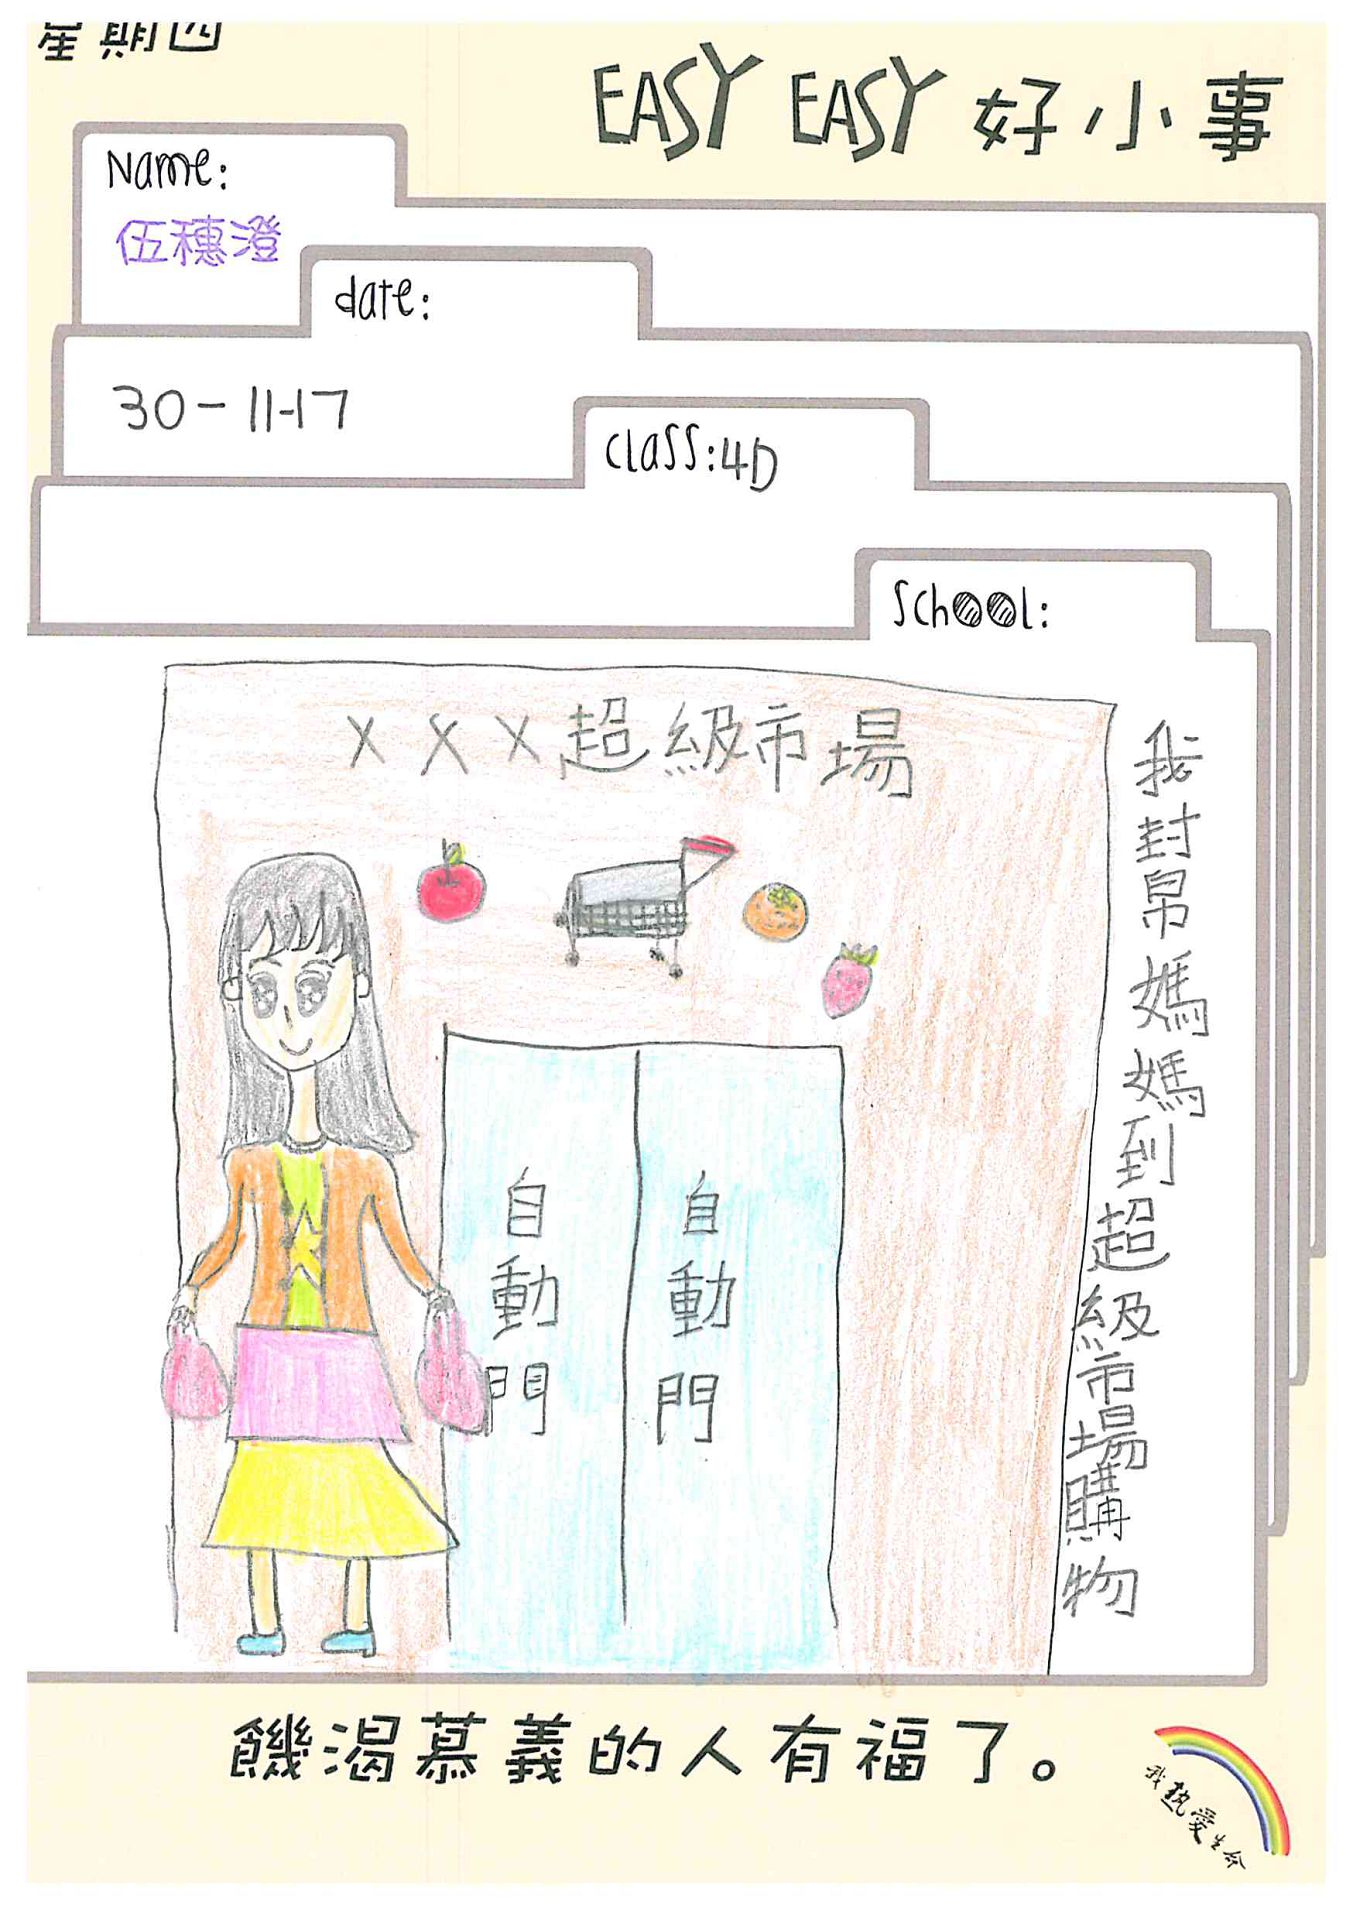 星期四
EASY EASY 好小事
Name:
伍穗澄
date:
30-11-17
class:4D
School:
XXX超級市場
自動門
自動門
我封帛媽媽到超級市場購物
饑渴慕義的人有福了。
我熱愛生命